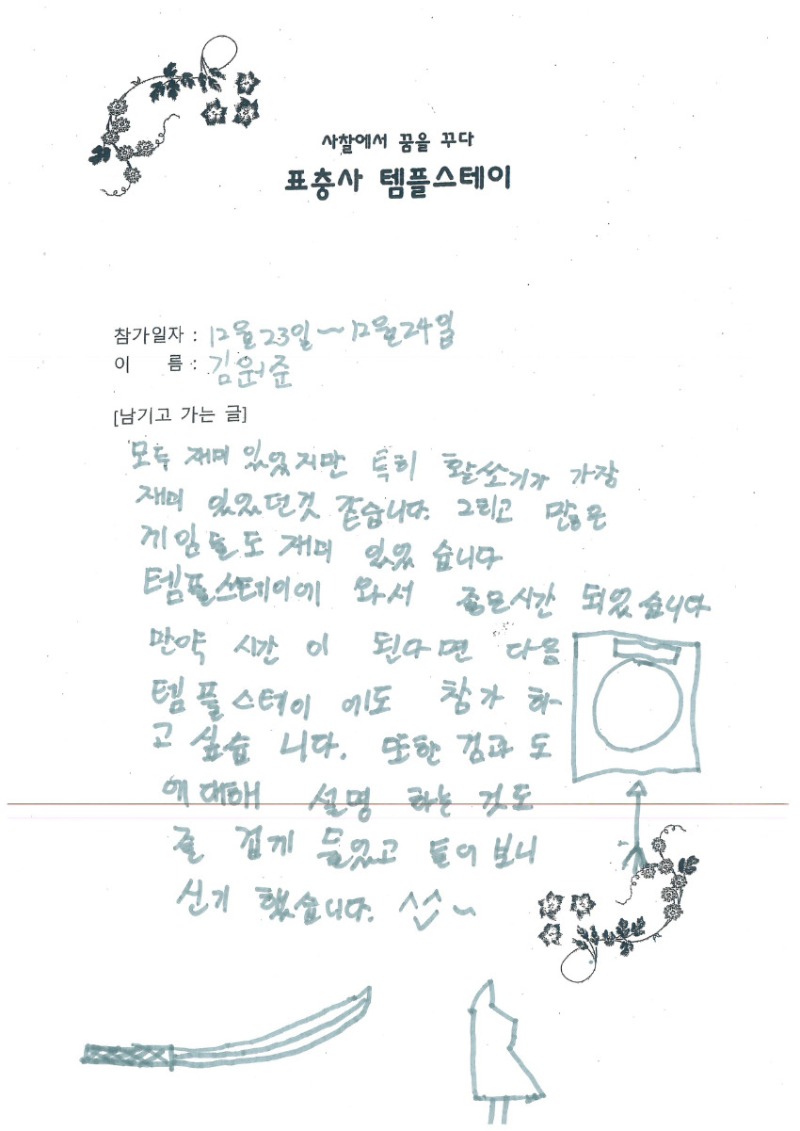 사찰에서 꿈을 꾸다
표충사 템플스테이
참가일자 : 12월23일~12월24일
이 름 : 김원준
[남기고 가는 글]
모두 재미 있었지만 특히 활쏘기가 가장
재미 있었던것 같습니다. 그리고 많은
게임들도 재미 있었 습니다
템플스테이에 와서 좋은시간 되었습니다
만약 시간 이 된다면 다음
템플스테이 에도 참가 하
고 싶습 니다. 또한 검과 도
에 대해 설명 하는 것도
즐 겁게 들었고 들어 보니
신기 했습니다. ^^~